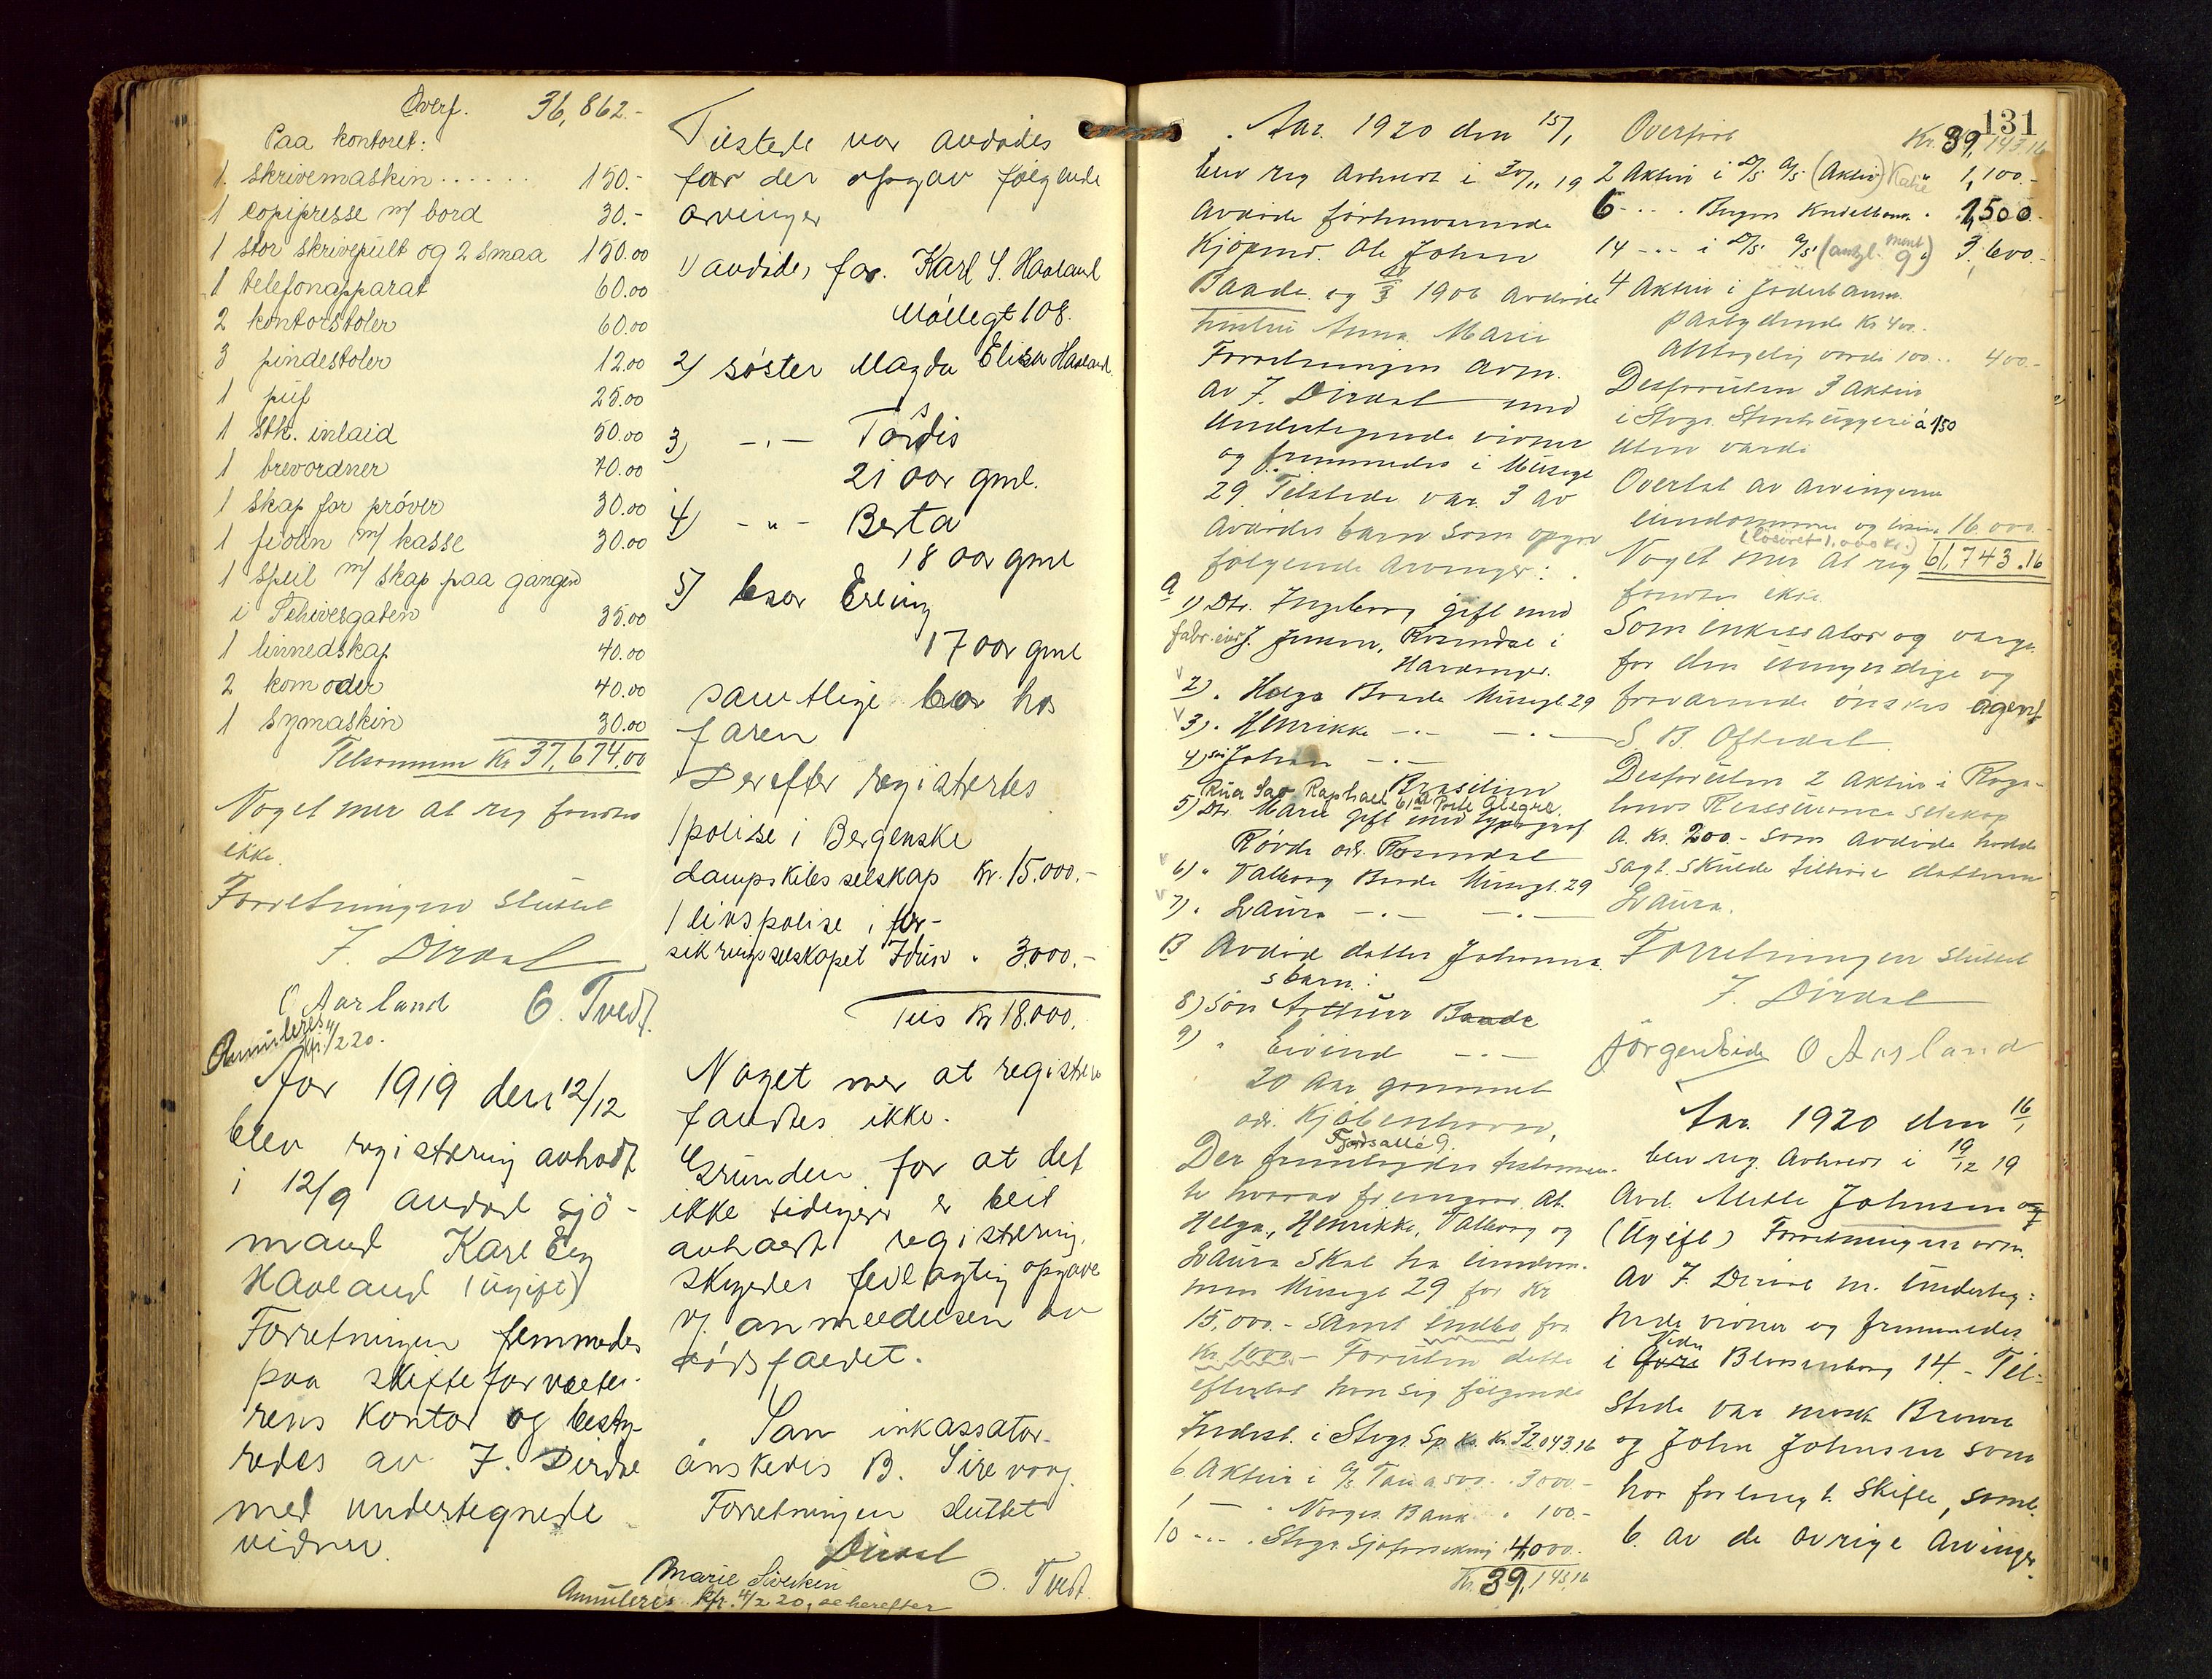 Overf. 36,862.-
Paa kontoret:
1. skrivemaskin ...... 150.-
1 copipresse m/ bord 30.-
1 stor skrivepult og 2 smaa 150.00
1 telefonapparat 60.00
2 kontorstoler 60.00
3 pindestoler 12.00
1 puf 25.00
1 stk. inlaid 50.00
1 brevordner 70.00
1 skap for prøver 30.00
1 fiolin m/ kasse 30.00
1 speil m/ skap paa gangen
i Tehivesgaten 35.00
1 linnedskap 40.00
2 komoder 40.00
1 symaskin 30.00
Tilsammen Kr 37,674,00
Noget mer at reg fandtes
ikke.
Forretningen sluttet
F. Dirdal
O Aarland O. Tvedt
Annuleres
kfr. 4/2 20.
Aar 1919 den 12/12
blev registrering avholdt
i 12/9 avdød sjö-
mand Karl Eeg
Haaland (ugift)
Forretningen fremmedes
paa skifteforvalte-
rens kontor og besty-
redes av F. Dirdal
med undertegnede
vidner.
Tilstede var avdødes
far der opgav følgende
arvinger
1) avdødes far. Karl S. Haaland
Møllegt 108.
2) søster Magda Elisa Haaland
3) -"- Tordis
21 aar gml.
4) -"- Berta
18 aar gml
5) bror Erling
17 aar gml
samtlige bor hos
faren
Derefter registrertes
1 polise i Bergenske
dampskibsselskap Kr. 15.000.-
1 livspolise i for-
sikringsselskapet Idun " 3,000.-
Tils Kr 18.000.
Noget mer at registrere
fandtes ikke.
Grunden for at det
ikke tidligere er blit
avholdt registrering
skyldes feilagtig opgave
v/ anmeldelsen av
dødsfaldet.
Som inkassator
ønskedes B. Sirevaag.
Forretningen sluttet
Dirdal
Marie Sivertsen O. Tvedt
Annuleres kfr. 4/2 20, se herefter
131
Aar. 1920 den 15/1
blev reg avholdt i 30/11 19
avdøde forhenværende
Kjøpmd. Ole Johan
Baade og 1906 avdøde
hustru Anna Marie
Forretningen avm.
av F. Dirdal med
undertegnede vidner
og fremmedes i Musegt
29. Tilstede var 3 av
avdødes barn som opgav
følgende arvinger:
A
1) Dtr. Ingeborg gift med
fabr.eier J. Jensen, Rosendal i
Hardanger.
2) " Helga Baade Musegt. 29
3) " Henrikke -"- -"-
4) søn Johan -"-
Brasilien
Rua Sao Raphael 61 Porte Alegre.
5) Dtr. Marie gift med typograf
Røvde adr. Rosendal
6) " Valborg Baade Musegt. 29
7) " Laura -"- -"-
B Avdød datter Johanna
s barn:
8) Søn Arthur Baade
9) " Eivind -"-
20 Aar gammel
adr. Kjøbenhavn,
Fjordsallé 9.
Der fremlagdes testamen-
te hvorav fremgaar at
Helga, Henrikke, Valborg og
Laura skal ha eiendom-
men Musegt 29 for Kr
15,000.- samt indbo for
Kr. 1000.- Foruten dette
efterlot han sig følgende
Indest. i Stvgr. Sp. ks. Kr. 32 043.16
6 Aktier i A/S Tau a 500. . 3000.-
1 - " Norges Bank " 100.-
10 -"- . Stvgr. Sjøforsikring . 4,000.-
Kr. 39,143,16
Overført Kr. 39,143.16
2 Aktier i D/S A/S (Aktiv) 1,100.-
6 -"- . Bergens Kreditbank . 1,500.-
14 -"- i D/S A/S 3,600.-
4 Aktier i Jæderbanen
paalydende Kr 400.
Antagelig værdi 100.. 400.-
Desforuten 3 Aktier
i Stvgr. Stenhuggeri à 150
uten værdi
Overtat av arvingerne
eiendommen og løsøre 16.000.-
(løsøret 1.000 kr.)
Noget mer at reg 61,743.16
fandtes ikke.
Som inkassator og værge
for den umyndige og
fraværende ønskes agent
S. B. Oftedal.
Desforuten 2 aktier i Roga-
lands Reassurance selskap
a. Kr. 200.- som avdøde hadde
sagt skulde tilhøre datteren
Laura.
Forretningen sluttet
F. Dirdal
Jörgen Eide O Aarland
Aar. 1920 den 16/1
blev reg. avholdt i 19/12 19
Avd. Mette Johnsen
(Ugift) Forretningen avm.
av F. Dirdal m. underteg-
nede vidner og fremmedes
i Nedre Blaasenborg 14 - Til-
stede var
og John Johnsen som
har forlangt Skifte, saml.
6. av de øvrige arvinger.